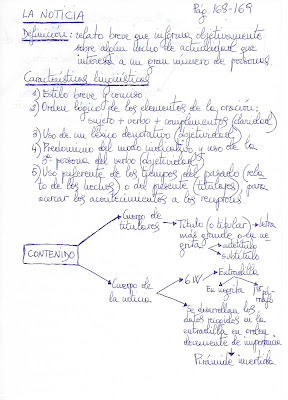 LA NOTICIA
Pág 168-169
Definición: relato breve que informa objetivamente
sobre algún hecho de actualidad que
interesa a un gran número de personas
Características lingüísticas
1) Estilo breve y conciso
2) Orden lógico de los elementos de la oración:
sujeto + verbo + complementos (claridad)
3) Uso de un léxico denotativo (objetividad)
4) Predominio del modo indicativo y uso de la
3ª persona del verbo (objetividad)
5) Uso preferente de los tiempos del pasado (rela
to de los hechos) o del presente (titulares), para
acercar los acontecimientos a los receptores
CONTENIDO
Cuerpo de
titulares
Título (o titular) letra
más grande o en ne
grita
antetítulo
subtítulo
Cuerpo de
la noticia
6W
Entradilla
En negrita
Se desarrollan los
datos recogidos en la
entradilla en orden
decreciente de importancia
Pirámide invertida